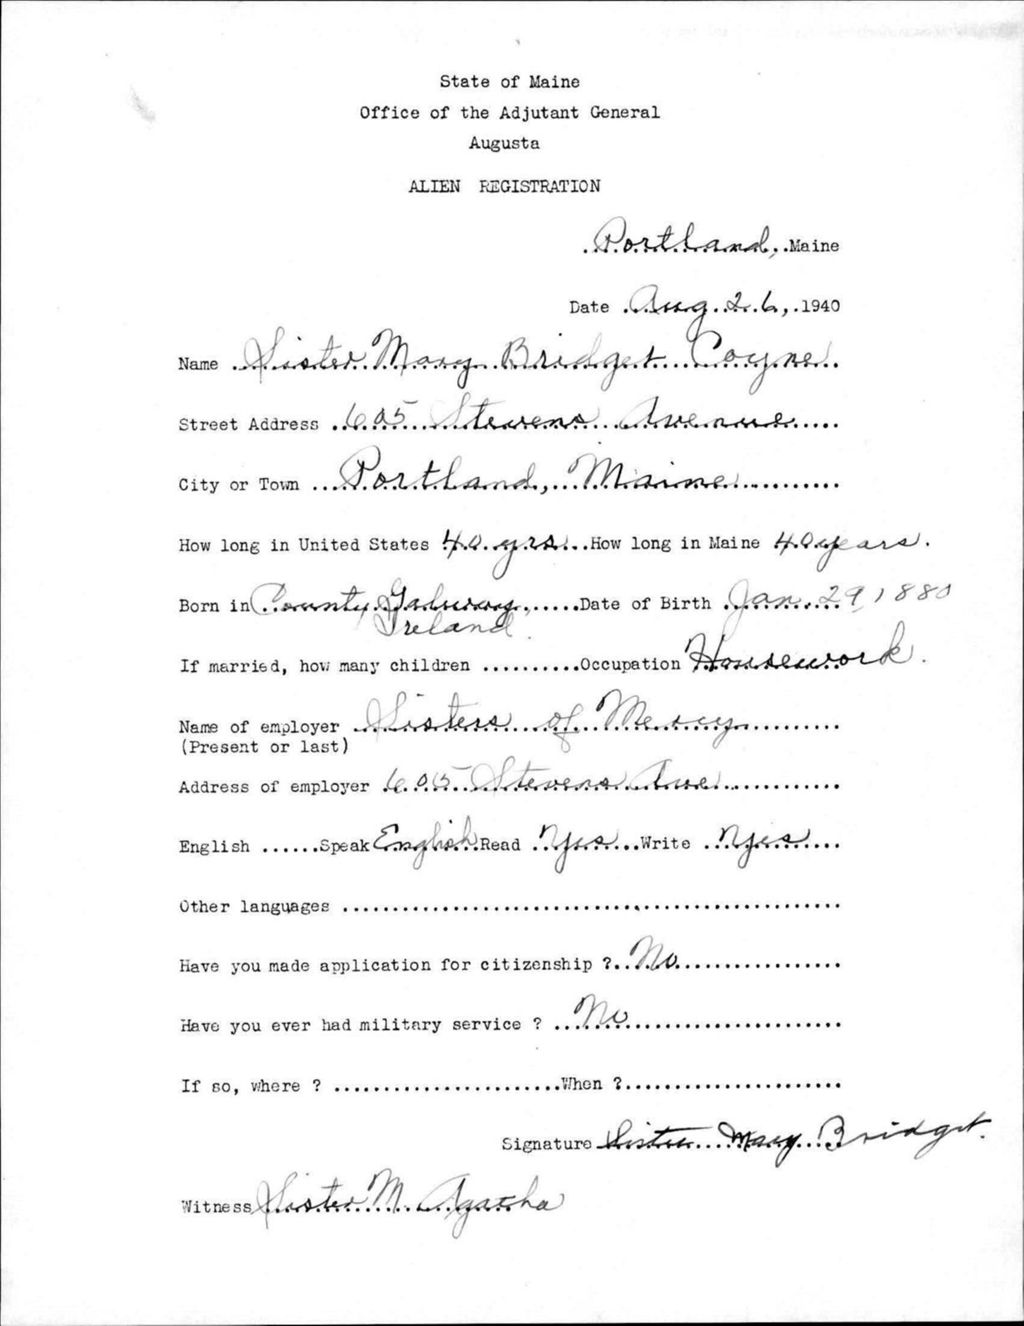 State of Maine
Office of the Adjutant General
Augusta
ALIEN REGISTRATION
Portland, Maine
Date Aug. 26, 1940
Name Sister Mary Bridget Coyne
Street Address 605 Stevens Avenue
City or Town Portland, Maine
How long in United States 40 yrs. How long in Maine 40 years.
Born in County Galway, Date of Birth Jan. 29, 1880
Ireland.
If married, how many children Occupation Housework.
Name of employer Sisters of Mercy
(Present or last)
Address of employer 605 Stevens Ave.
English Speak English Read Yes Write Yes
Other languages
Have you made application for citizenship ? No
Have you ever had military service ? No
If so, where ? When ?
Signature Sister Mary Bridget.
Witness Sister M. Agatha